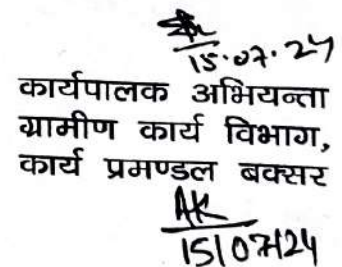 15.07.24
कार्यपालक अभियन्ता
ग्रामीण कार्य विभाग,
कार्य प्रमण्डल बक्सर
AK
15/07/24